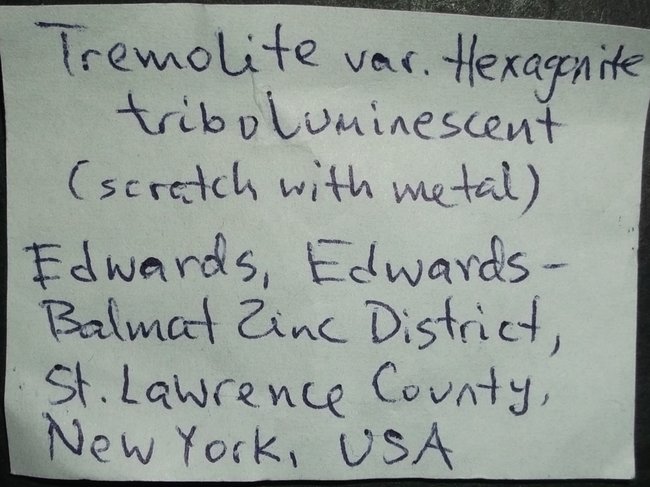 Tremolite var. Hexagonite
triboluminescent
(scratch with metal)
Edwards, Edwards-
Balmat Zinc District,
St. Lawrence County,
New York, USA